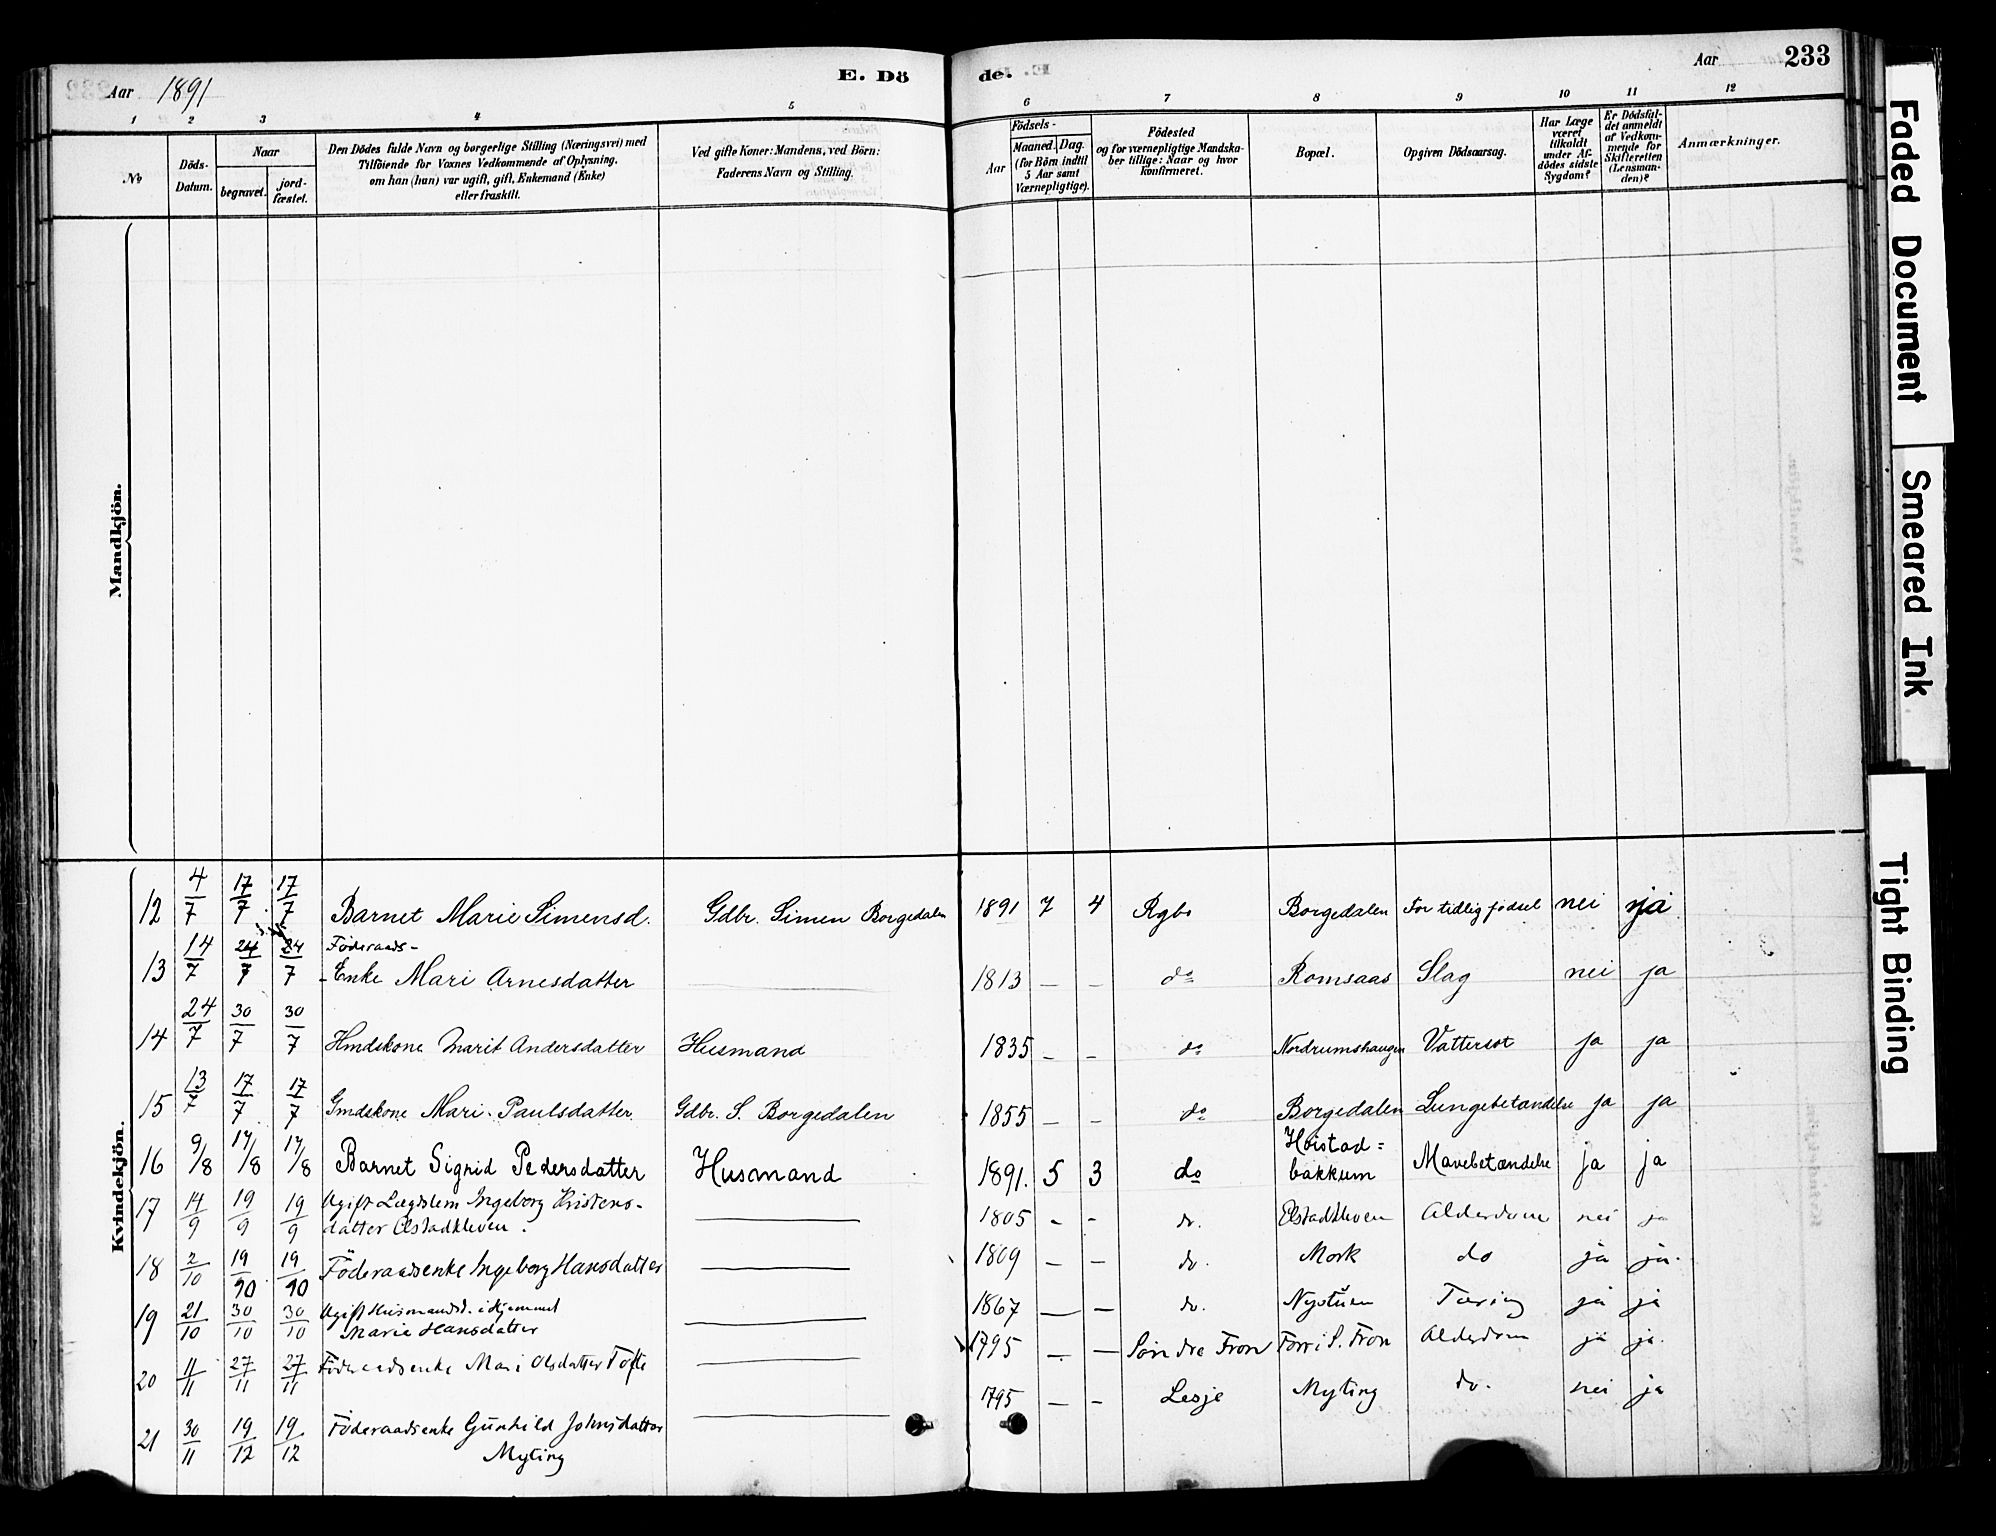 Aar 1891
E. Dö
de.
Aar
233
1 2 3 4 5
6 7 8 9 10 11 12
No
Döds-Datum.
Naar
begravet.
jord-fæstet.
Den Dödes fulde Navn og borgerlige Stilling (Næringsvei) med
Tilföiende for Voxnes Vedkommende af Oplysning,
om han (hun) var ugift, gift, Enkemand (Enke)
eller fraskilt.
Ved gifte Koner: Mandens, ved Börn:
Faderens Navn og Stilling.
Födsels-
Aar
Maaned.
Dag.
(for Börn indtil
5 Aar samt
Værnepligtige).
Födested
og for værnepligtige Mandska-
ber tillige: Naar og hvor
konfirmeret.
Bopæl.
Opgiven Dödsaarsag.
Har Læge
været
tilkaldt
under Af-
dödes sidste
Sygdom?
Er Dödsfal-
det anmeldt
af Vedkom-
mende for
Skifteretten
(Lensman-
den)?
Anmærkninger.
Mandkjön.
Kvindekjön.
12 4/7 17/7 17/7 Barnet Marie Simensd. Gdbr. Simen Borgedalen 1891 7 4 Rgbo Borgedalen For tidlig födsel nei ja
13 14/7 24/7 24/7 Föderaads-
Enke Mari Arnesdatter — 1813 — — do Romsaas Slag nei ja
14 24/7 30/7 30/7 Hmdskone Marit Andersdatter Husmand 1835 — — do Nordrumshaugen Vattersot ja ja
15 13/7 17/7 17/7 Gmdskone Mari Paulsdatter Gdbr. S. Borgedalen 1855 — — do Borgedalen Lungebetændelse ja ja
16 9/8 17/8 17/8 Barnet Sigrid Pedersdatter Husmand 1891. 5 3 do Höistad=
bakkum Mavebetændelse ja ja
17 14/9 19/9 19/9 Ugift Lægdslem Ingeborg Kristens-
datter Elstadkleven. — 1805 - - do. Elstadkleven Alderdom nei ja
18 2/10 19/10 19/10 Föderaadsenke Ingeborg Hansdatter — 1809 — — do. Mork do ja ja.
19 21/10 30/10 30/10 Ugift Husmandsd. i Hjemmet
Marie Hansdatter — 1867 — — do. Nystuen Tæring ja ja
20 11/11 27/11 27/11 Föderaadsenke Mari Olsdatter Tofte — 1795 — — Söndre Fron Forr i S. Fron Alderdom ja ja.
21 30/11 19/12 19/12 Föderaadsenke Gunhild Johnsdatter
Myting — 1795 — - Lesje Myting do. nei ja
Faded Document
Smeared Ink
Tight Binding